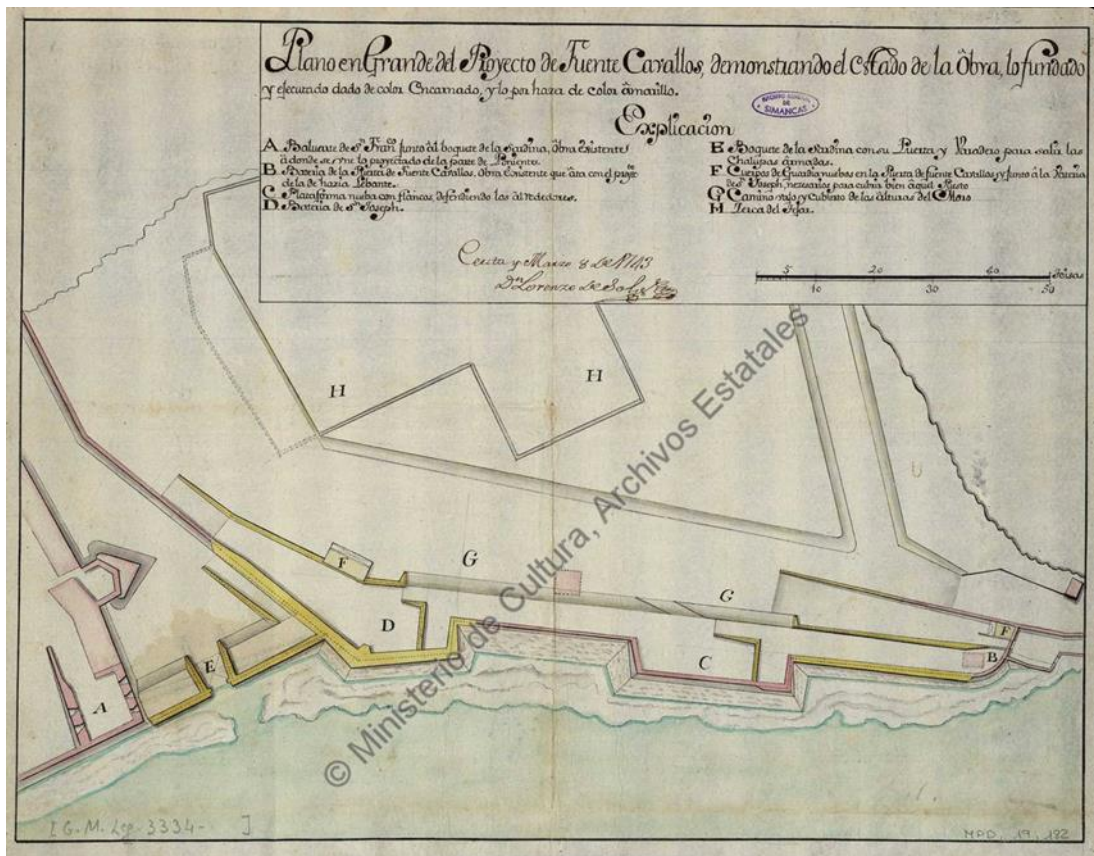 Plano en Grande del Proyecto de Fuente Cavallos, demonstrando el Estado de la Obra, lo fundado
y executado dado de color Encarnado, y lo por hazer de color amarillo.
ARCHIVO GENERAL
DE
SIMANCAS
Explicacion
A Baluarte de Sn. Franco. junto al boquete de la Sardina, Obra Existente
adonde se une lo proyectado de la parte de Poniente.
B Bateria de la Puerta de Fuente Cavallos. Obra Existente que ata con el proyto.
de la de hazia Lebante.
C Plataforma nueba con flancos, defendiendo los alrededores.
D Bateria de Sn. Joseph.
E Boquete de la Sardina con su Puerta y Varadero para salir las
Chalupas armadas.
F Cuerpos de Guardia nuebos en la Puerta de fuente Cavallos y junto a la Bateria
de Sn. Joseph, nezesarios para cubrir bien aquel Puesto
G Camino vajo y cubierto de las alturas del Moro
H Zerca del Tejar.
Ceuta y Marzo 8 de 1743
Dn. Lorenzo de Solis
5 20 40 toisas
10 30 50
H
H
F
G
G
D
C
F
B
E
A
© Ministerio de Cultura, Archivos Estatales
[G.M. Leg. 3334- ]
MPD, 19, 182